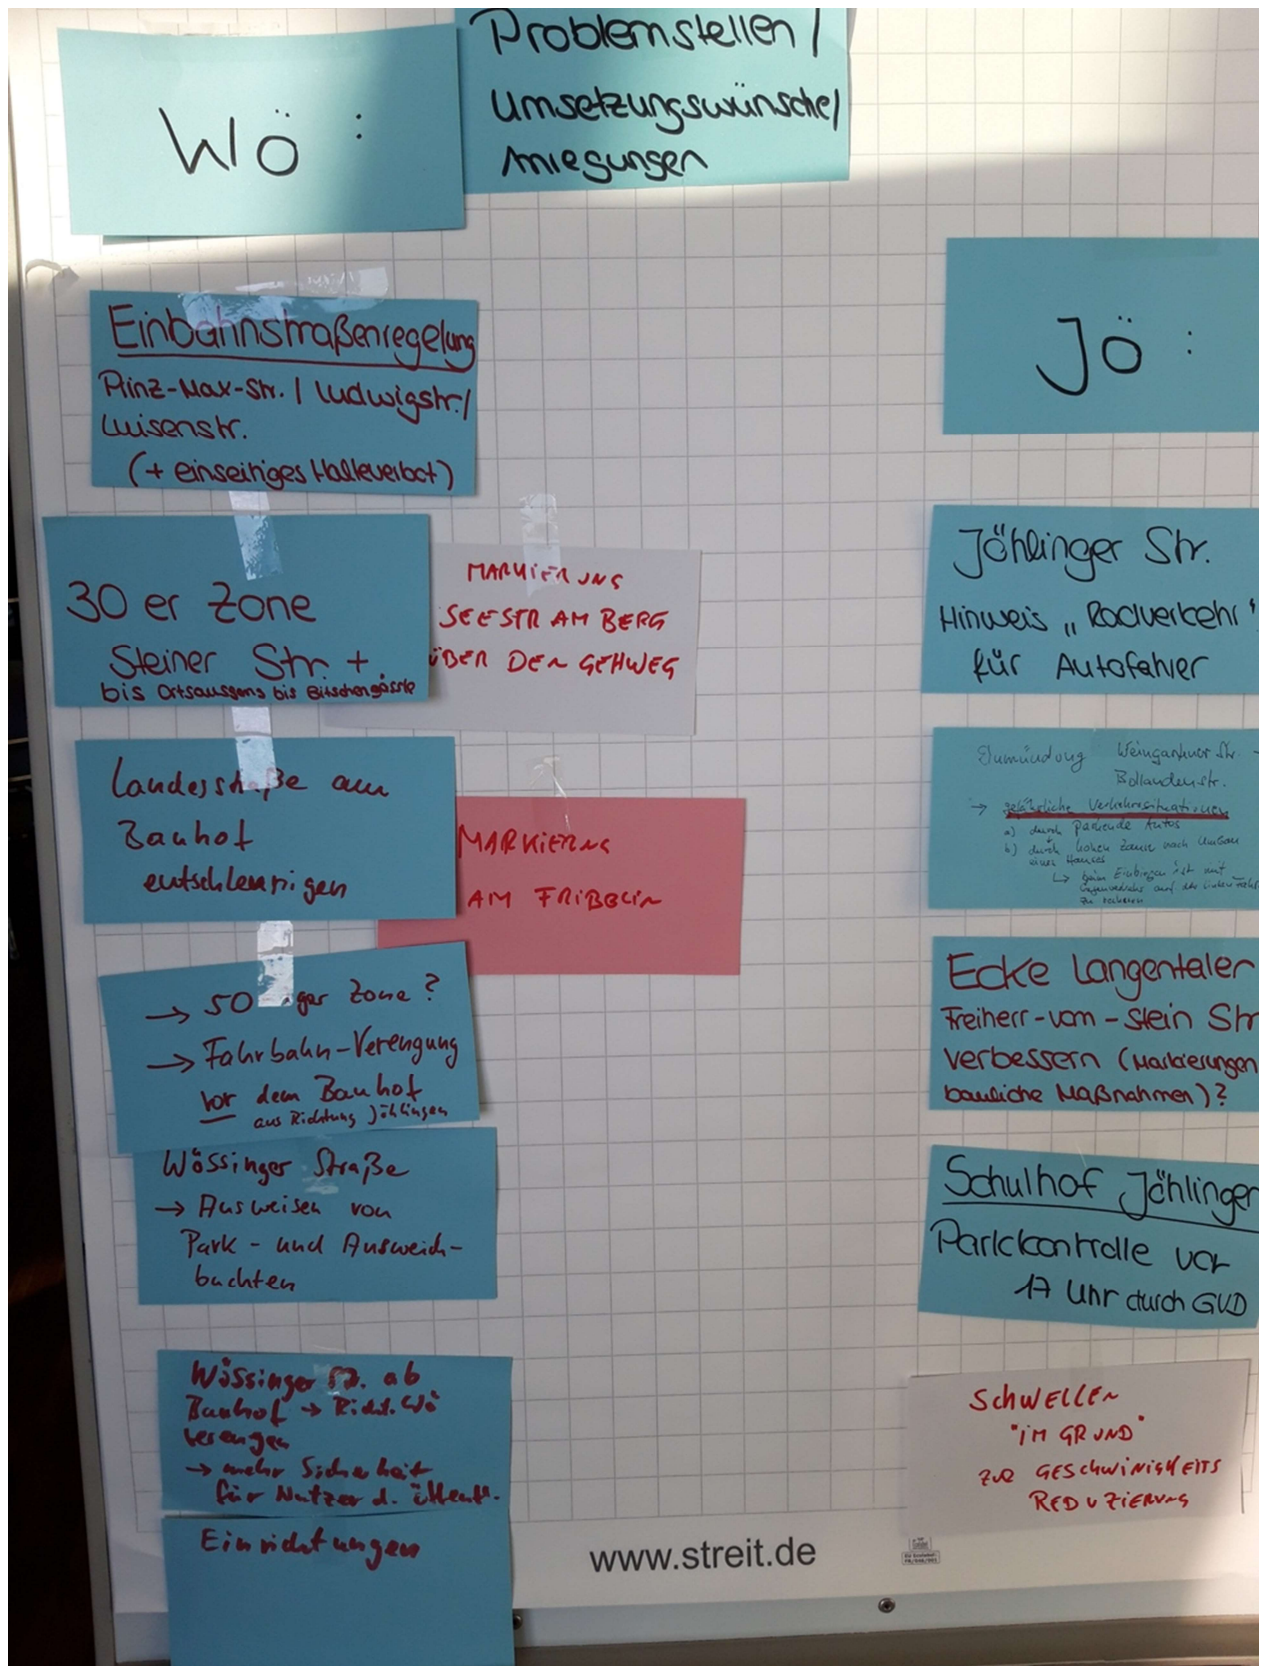 Problemstellen /
Umsetzungswünsche /
Anregungen
Wö :
Einbahnstraßenregelung
Prinz-Max-Str. / Ludwigstr. /
Luisenstr.
(+ einseitiges Halteverbot)
30 er Zone
Steiner Str. +
bis Ortsausgang bis Bitschengässle
MARKIERUNG
SEESTR AM BERG
ÜBER DEN GEHWEG
Landesstraße am
Bauhof
entschleunigen
MARKIERNG
AM FRIBOLIN
→ 50 ger Zone?
→ Fahrbahn-Verengung
vor dem Bauhof
aus Richtung Jöhlingen
Wössinger Straße
→ Ausweisen von
Park- und Ausweich-
buchten
Wössinger Str. ab
Bauhof → Richt. Wö
verengen
→ mehr Sicherheit
für Nutzer d. öffentl.
Einrichtungen
Jö :
Jöhlinger Str.
Hinweis „Radverkehr"
für Autofahrer
Einmündung Weingartner Str. -
Bollandenstr.
→ gefährliche Verkehrssituationen
a) durch parkende Autos
b) durch hohen Zaun nach Umbau
eines Hauses
↳ beim Einbiegen ist mit
Gegenverkehr auf der linken
zu rechnen
Ecke Langentaler
Freiherr-vom-Stein Str
verbessern (Markierungen
bauliche Maßnahmen)?
Schulhof Jöhlingen
Parkkontrolle vor
17 Uhr durch GVD
SCHWELLEN
"IM GRUND"
ZUR GESCHWINIGKEITS
REDUZIERUNG
www.streit.de